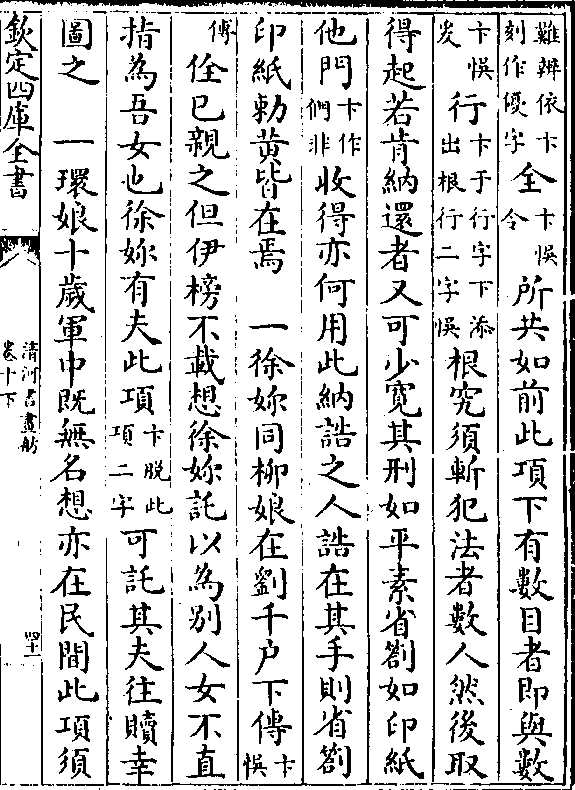 難辨依卞刻作優字全卞悞令所共如前此項下有數目者即與數
卞悞发行卞于行字下添出根行二字悞根究須斬犯法者數人然後取
得起若肯納還者又可少寬其刑如平素省劄如印紙
他門卞作們非收得亦何用此納誥之人誥在其手則省劄
印紙勅黄皆在焉　一徐妳同柳娘在劉千户下傳卞悞
傅佺已親之但伊榜不載想徐妳託以為别人女不直
指為吾女也徐妳有夫此項卞脱此項二字可託其夫往贖幸
圖之　一環娘十歲軍中既無名想亦在民間此項須
欽定四庫全書
清河書畫舫
卷十下
四十一